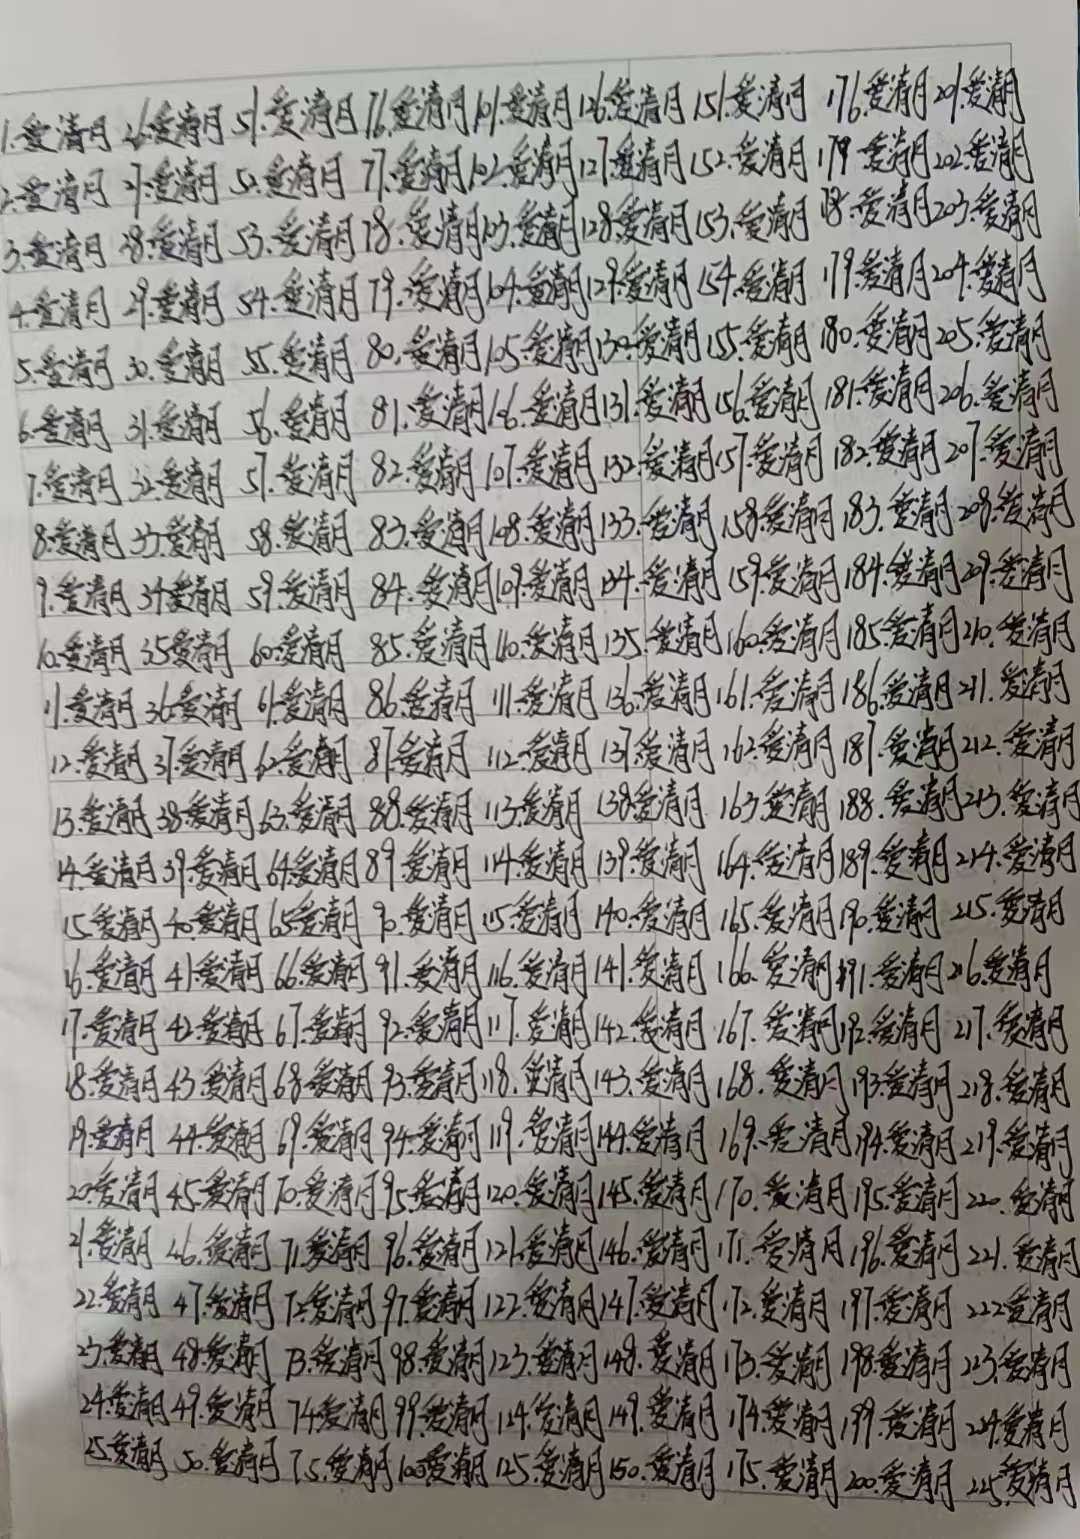 1.爱清月 26.爱清月 51.爱清月 76.爱清月 101.爱清月 126.爱清月 151.爱清月 176.爱清月 201.爱清月
2.爱清月 27.爱清月 52.爱清月 77.爱清月 102.爱清月 127.爱清月 152.爱清月 177.爱清月 202.爱清月
3.爱清月 28.爱清月 53.爱清月 78.爱清月 103.爱清月 128.爱清月 153.爱清月 178.爱清月 203.爱清月
4.爱清月 29.爱清月 54.爱清月 79.爱清月 104.爱清月 129.爱清月 154.爱清月 179.爱清月 204.爱清月
5.爱清月 30.爱清月 55.爱清月 80.爱清月 105.爱清月 130.爱清月 155.爱清月 180.爱清月 205.爱清月
6.爱清月 31.爱清月 56.爱清月 81.爱清月 106.爱清月 131.爱清月 156.爱清月 181.爱清月 206.爱清月
7.爱清月 32.爱清月 57.爱清月 82.爱清月 107.爱清月 132.爱清月 157.爱清月 182.爱清月 207.爱清月
8.爱清月 33.爱清月 58.爱清月 83.爱清月 108.爱清月 133.爱清月 158.爱清月 183.爱清月 208.爱清月
9.爱清月 34.爱清月 59.爱清月 84.爱清月 109.爱清月 134.爱清月 159.爱清月 184.爱清月 209.爱清月
10.爱清月 35.爱清月 60.爱清月 85.爱清月 110.爱清月 135.爱清月 160.爱清月 185.爱清月 210.爱清月
11.爱清月 36.爱清月 61.爱清月 86.爱清月 111.爱清月 136.爱清月 161.爱清月 186.爱清月 211.爱清月
12.爱清月 37.爱清月 62.爱清月 87.爱清月 112.爱清月 137.爱清月 162.爱清月 187.爱清月 212.爱清月
13.爱清月 38.爱清月 63.爱清月 88.爱清月 113.爱清月 138.爱清月 163.爱清月 188.爱清月 213.爱清月
14.爱清月 39.爱清月 64.爱清月 89.爱清月 114.爱清月 139.爱清月 164.爱清月 189.爱清月 214.爱清月
15.爱清月 40.爱清月 65.爱清月 90.爱清月 115.爱清月 140.爱清月 165.爱清月 190.爱清月 215.爱清月
16.爱清月 41.爱清月 66.爱清月 91.爱清月 116.爱清月 141.爱清月 166.爱清月 191.爱清月 216.爱清月
17.爱清月 42.爱清月 67.爱清月 92.爱清月 117.爱清月 142.爱清月 167.爱清月 192.爱清月 217.爱清月
18.爱清月 43.爱清月 68.爱清月 93.爱清月 118.爱清月 143.爱清月 168.爱清月 193.爱清月 218.爱清月
19.爱清月 44.爱清月 69.爱清月 94.爱清月 119.爱清月 144.爱清月 169.爱清月 194.爱清月 219.爱清月
20.爱清月 45.爱清月 70.爱清月 95.爱清月 120.爱清月 145.爱清月 170.爱清月 195.爱清月 220.爱清月
21.爱清月 46.爱清月 71.爱清月 96.爱清月 121.爱清月 146.爱清月 171.爱清月 196.爱清月 221.爱清月
22.爱清月 47.爱清月 72.爱清月 97.爱清月 122.爱清月 147.爱清月 172.爱清月 197.爱清月 222.爱清月
23.爱清月 48.爱清月 73.爱清月 98.爱清月 123.爱清月 148.爱清月 173.爱清月 198.爱清月 223.爱清月
24.爱清月 49.爱清月 74.爱清月 99.爱清月 124.爱清月 149.爱清月 174.爱清月 199.爱清月 224.爱清月
25.爱清月 50.爱清月 75.爱清月 100.爱清月 125.爱清月 150.爱清月 175.爱清月 200.爱清月 225.爱清月